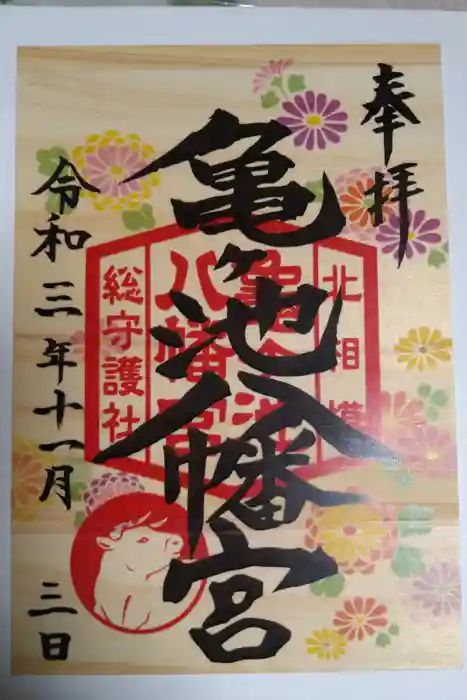 奉拝
亀ヶ池八幡宮
令和三年十一月三日
北相模
亀ヶ池
八幡宮
総守護社